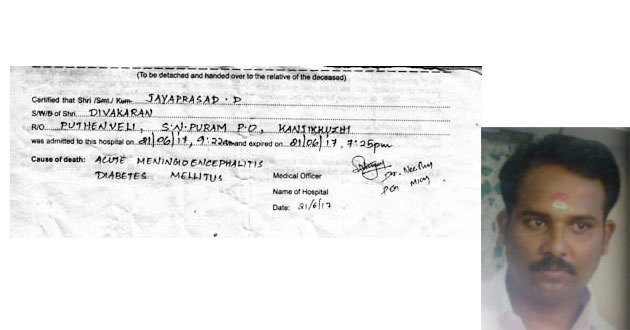 (To be detached and handed over to the relative of the deceased)
Certified that Shri /Smt./ Kum. JAYAPRASAD . D
S/W/D of Shri. DIVAKARAN
R/O PUTHENVELI, S.N. PURAM P.O, KANJIKKUZHI
was admitted to this hospital on 21/06/17, 9:22am and expired on 21/06/17, 7:25pm
Cause of death: ACUTE MENINGIOENCEPHALITIS
DIABETES MELLITUS
Medical Officer Dr.
Name of Hospital PGI
Date: 21/6/17